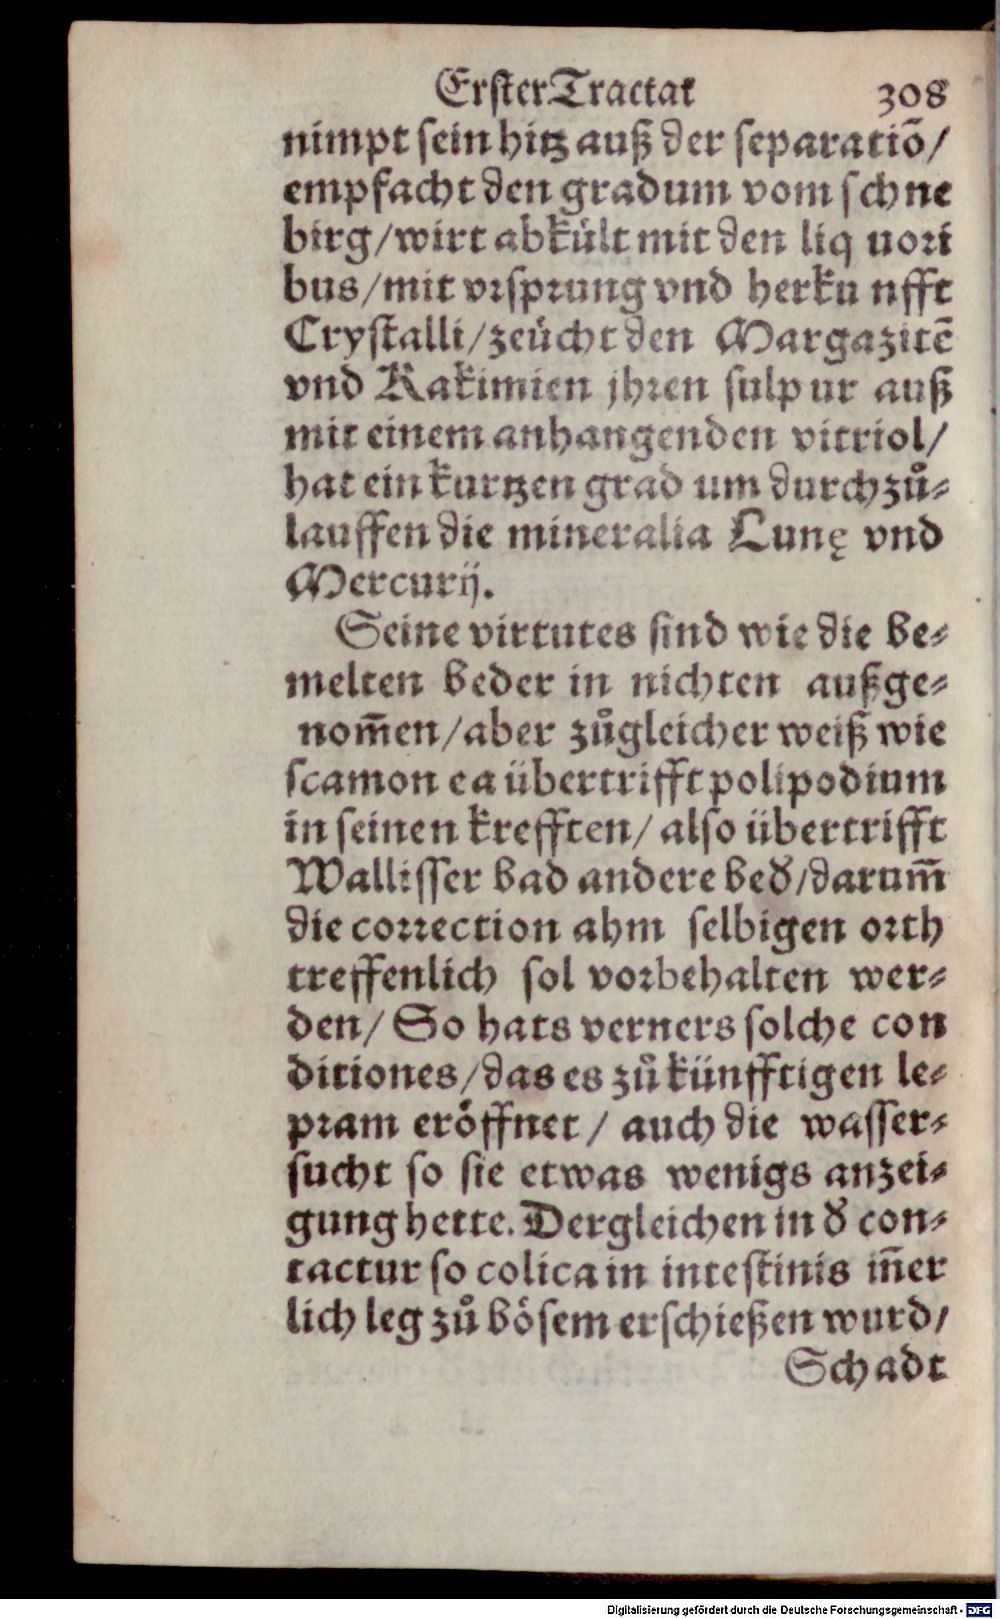 Erster Tractat 308
nimpt sein hitz auß der separatiõ/
empfacht den gradum vom schne
birg/wirt abkült mit den liq uori
bus/mit vrsprung vnd herku nfft
Crystalli/zeücht den Margazitẽ
vnd Kakimien jhren sulp ur auß
mit einem anhangenden vitriol/
hat ein kurtzen grad um durchzů⸗
lauffen die mineralia Lunę vnd
Mercurij.
Seine virtutes sind wie die be⸗
melten beder in nichten außge⸗
nom̃en/aber zůgleicher weiß wie
scamon ea übertrifft polipodium
in seinen krefften/ also übertrifft
Wallisser bad andere bed/darum̃
die correction ahm selbigen orth
treffenlich sol vorbehalten wer⸗
den/ So hats verners solche con
ditiones/das es zů künfftigen le⸗
pram eröffnet / auch die wasser⸗
sucht so sie etwas wenigs anzei⸗
gung hette. Dergleichen in d con⸗
tactur so colica in intestinis iñer
lich leg zů bösem erschießen wurd/
Schadt
Digitalisierung gefördert durch die Deutsche Forschungsgemeinschaft - DFG